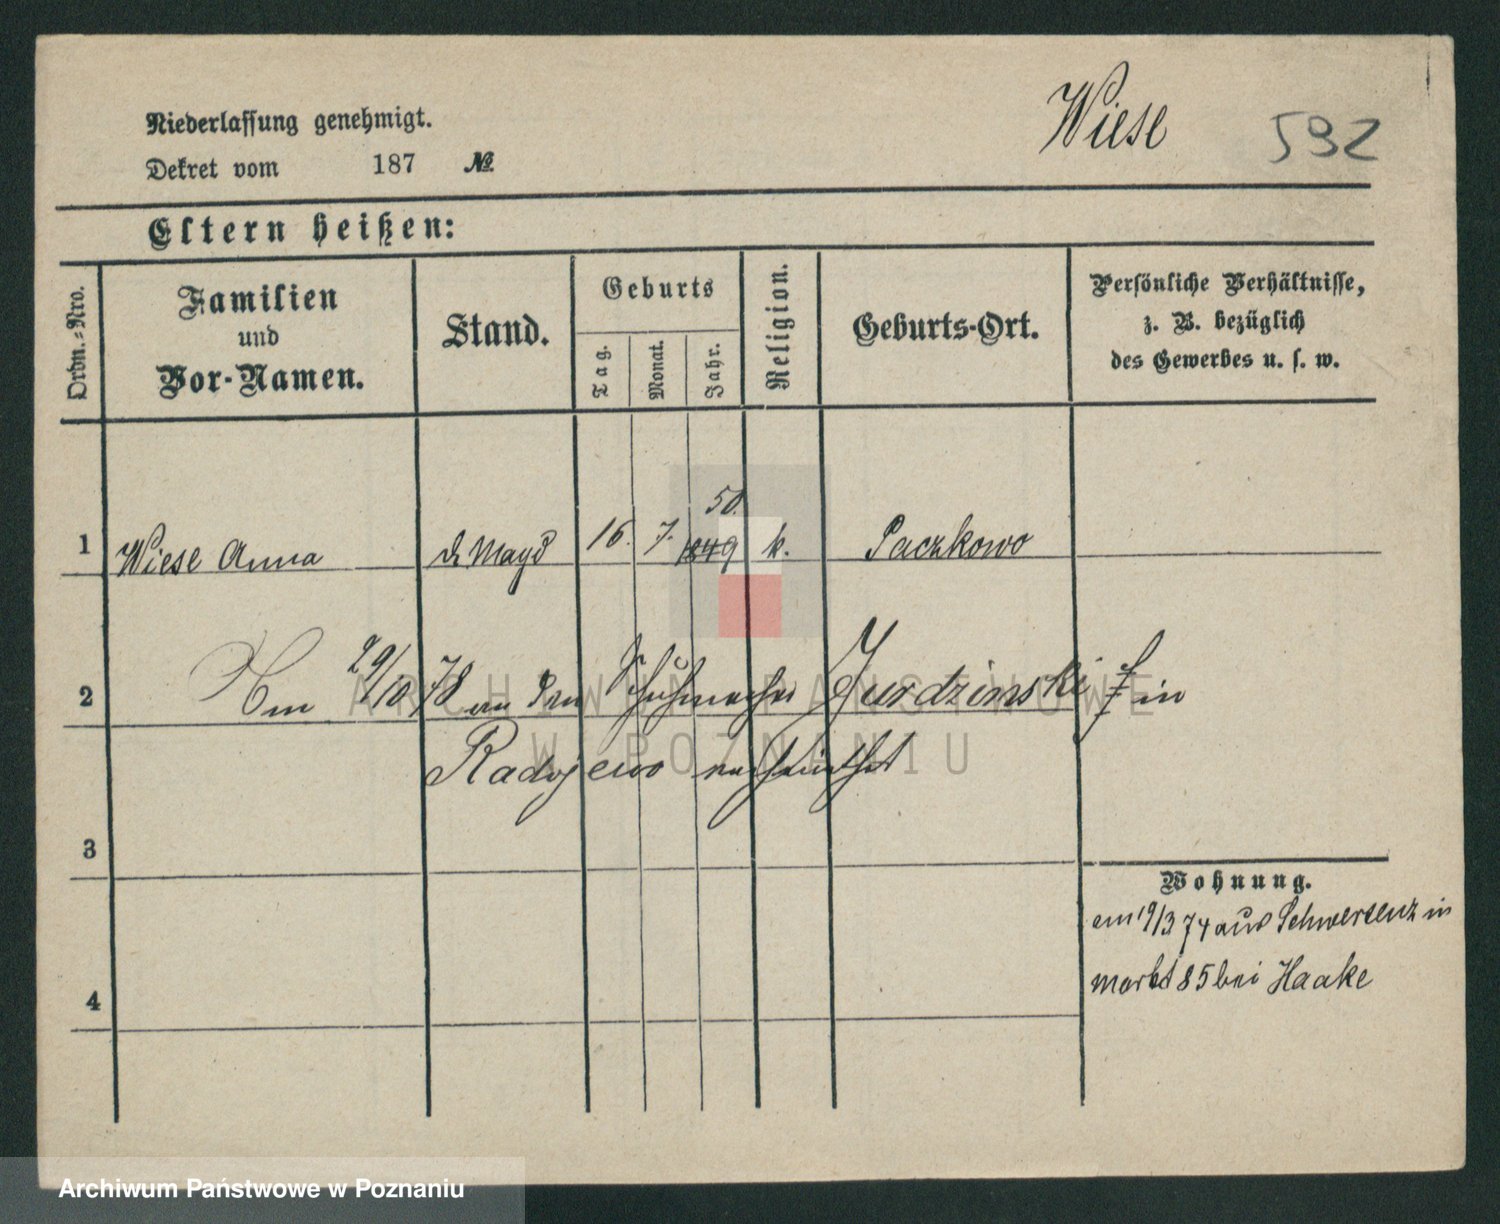 Wiese 592
Niederlassung genehmigt.
Dekret vom 187 №
Eltern heißen:
Ordn.-Nro.
Familien
und
Vor-Namen.
Stand.
Geburts
Tag.
Monat.
Jahr.
Religion.
Geburts-Ort.
Persönliche Verhältnisse,
z. B. bezüglich
des Gewerbes u. s. w.
50.
1 Wiese Anna d. Magd 16. 7. 1849 k. Paczkowo
2 Am 29/10 78 an den Schuhmacher Zurdzinski in
Radojewo verheirathet
3
Wohnung.
am 19/3 74 aus Schwersenz in
markt 85 bei Haake
4
ARCHIWUM PAŃSTWOWE
W POZNANIU
Archiwum Państwowe w Poznaniu